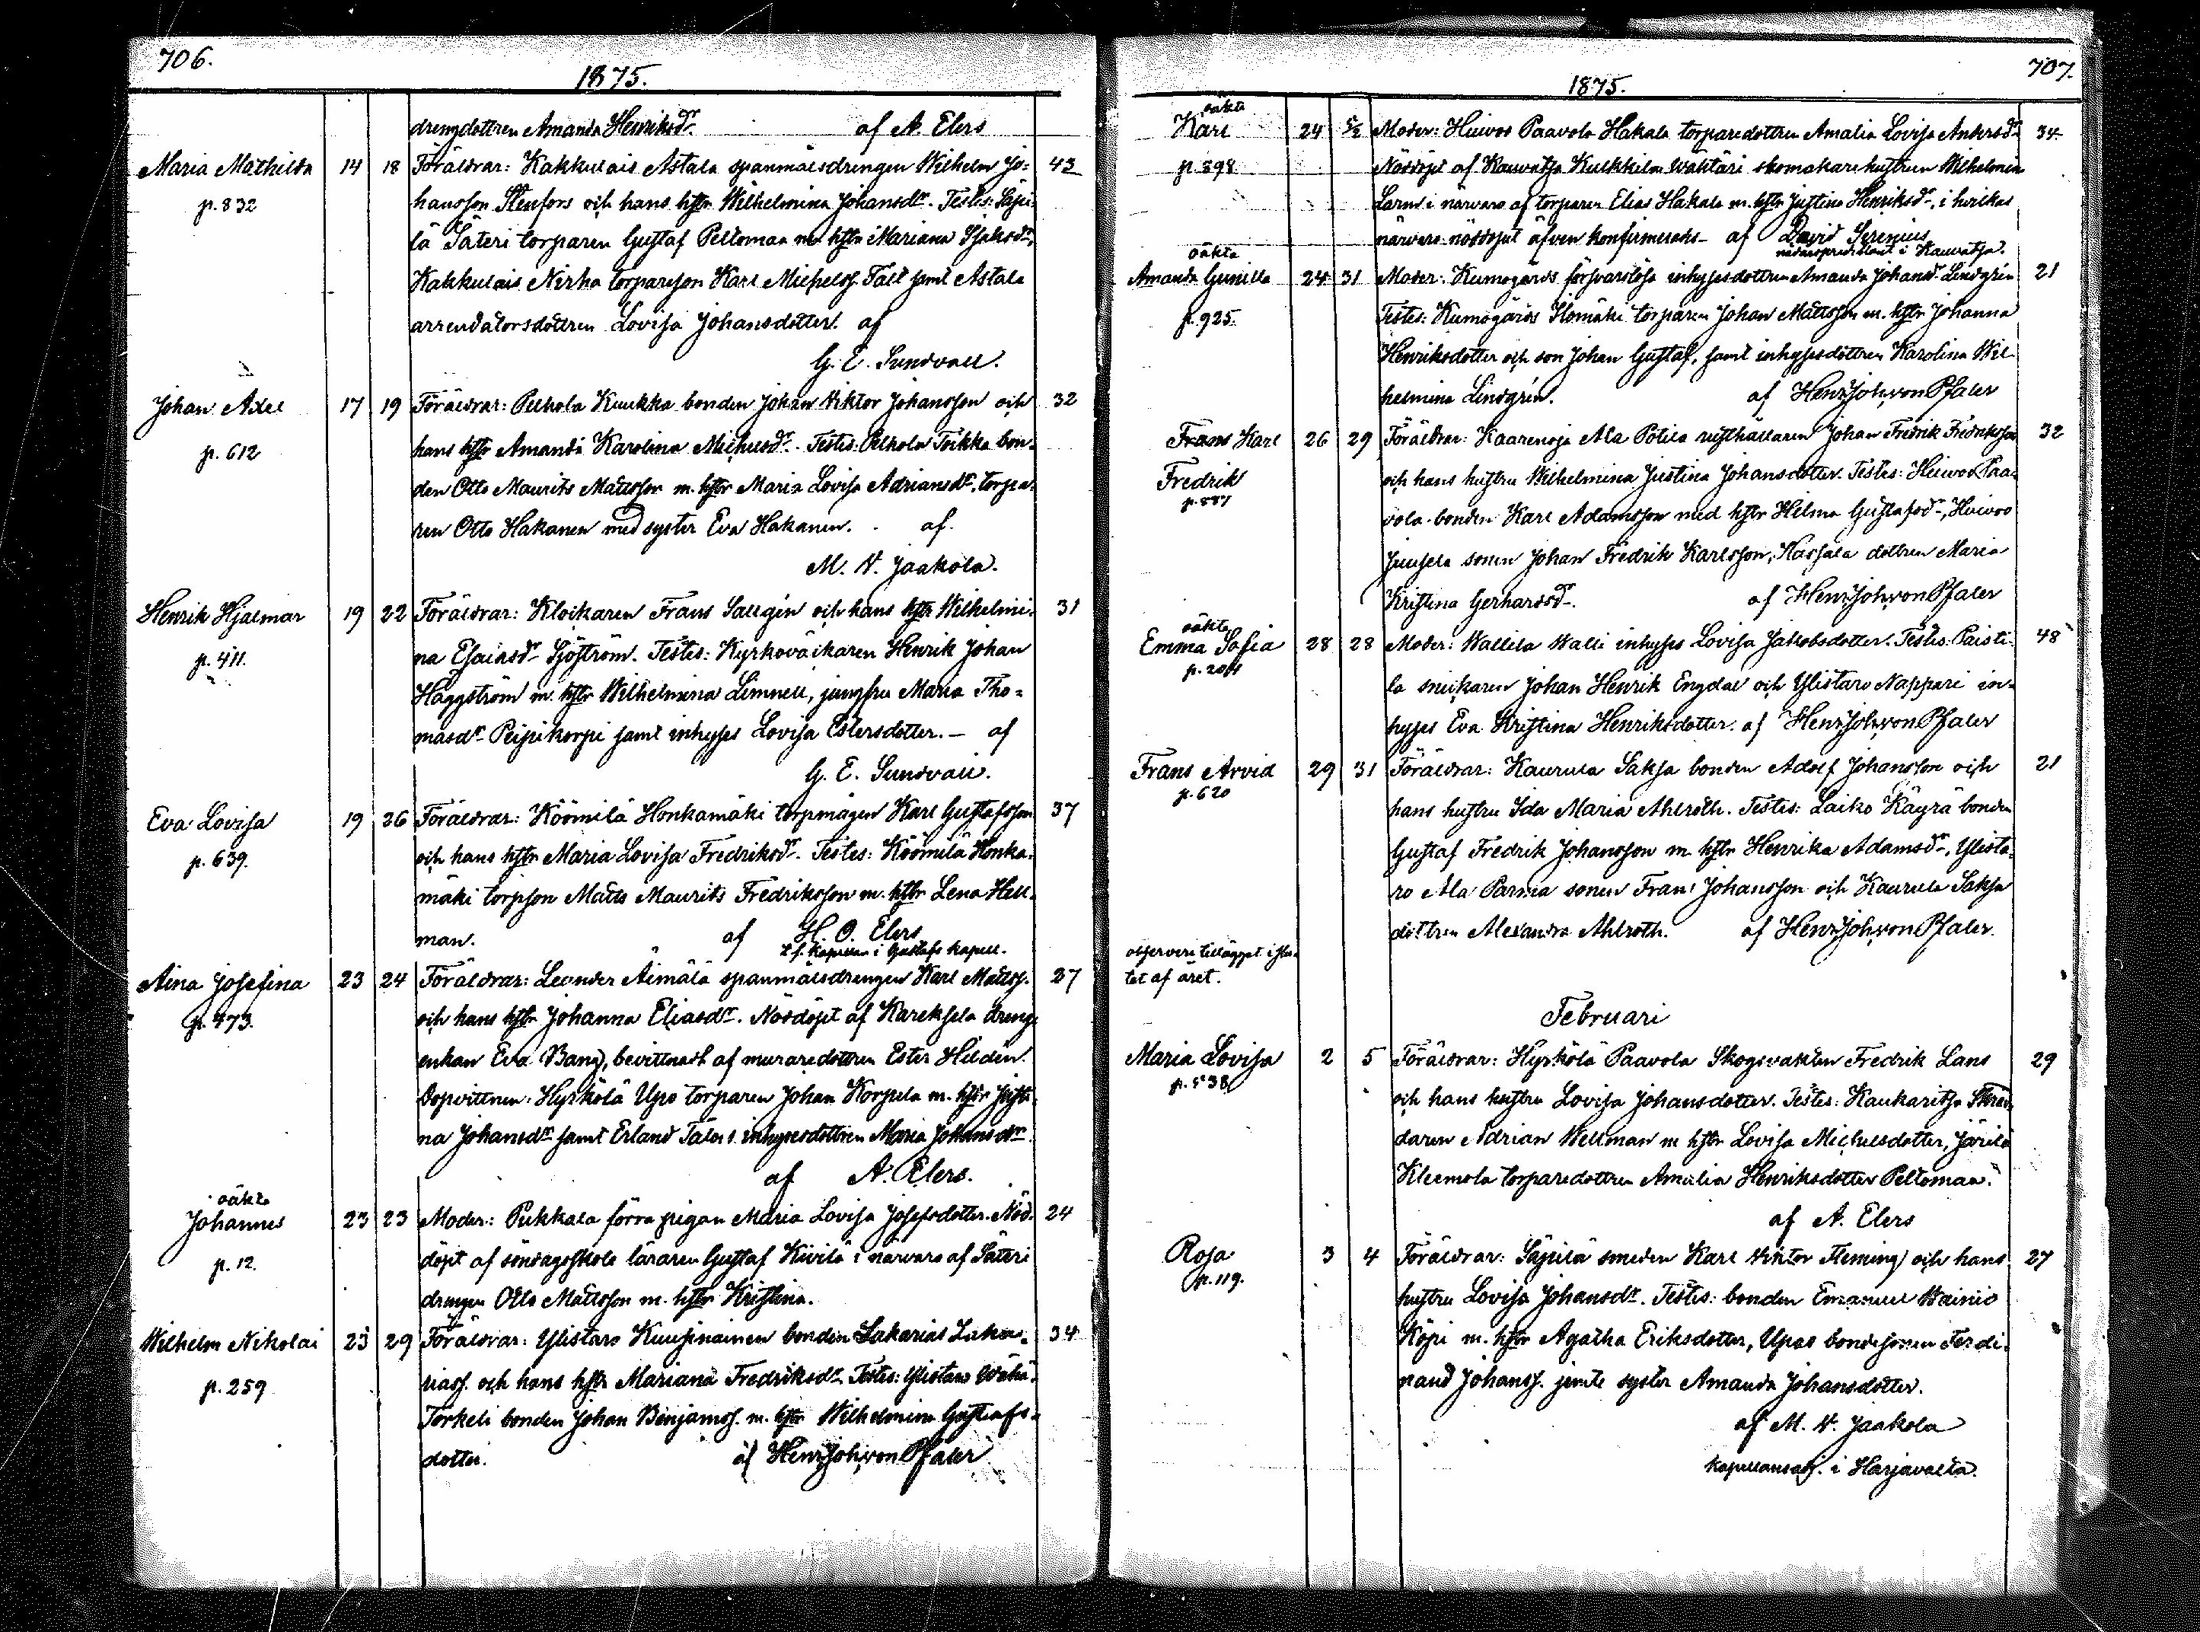 706.
1875.
drengdottren Amanda Henriksdr. af A. Elers
Maria Mathilda 14 18 Föräldrar: Kakkulais Astala spanmålsdrengen Wilhelm Jo- 43
p. 832 hansson Stenfors och hans hstr Wilhelmina Johansdr. Testes: Säpi-
lä Säteri torparen Gustaf Peltoman m. hstr Mariana Isaksdr,
Kakkulais Nirha torparson Karl Michelss. Fält samt Astala
arrendatorsdottren Lovisa Johansdotter. af
G. E. Sundvall.
Johan Axel 17 19 Föräldrar: Pelhola Kuukka bonden Johan Viktor Johansson och 32
p. 612 hans hstr Amanda Karolina Michelsdr. Testes: Pelhola Toikka bon-
den Otto Maurits Mattsson m. hstr Maria Lovisa Adriansdr, torpa-
ren Otto Hakanen med syster Eva Hakanen. af
M. V. Jaakola.
Henrik Hjalmar 19 22 Föräldrar: Klockaren Frans Sallgén och hans hstr Wilhelmi- 31
p. 411. na Esaiasdr Sjöström. Testes: Kyrkoväktaren Henrik Johan
Häggström m. hstr Wilhelmina Limnell, jungfru Maria Tho-
masdr Peipikorpi samt inhyses Lovisa Estersdotter. – af
G. E. Sundvall.
Eva Lovisa 19 26 Föräldrar: Köömilä Honkamäki torpmågen Karl Gustafsson 37
p. 639. och hans hstr Maria Lovisa Fredriksdr. Testes: Köömilä Honka-
mäki torpson Matts Maurits Fredriksson m. hstr Lena Hell-
man. af H. O. Elers
t. f. Kapellan i Gustafs Kapell.
Aina Josefina 23 24 Föräldrar: Leander Äimälä spanmålsdrengen Karl Mattss. 27
p. 473. och hans hstr Johanna Eliasdr. Nöddöpt af Kareksela dreng-
enkan Eva (Bang), bevittnadt af muraredottren Ester Hildén.
Dopvittnen: Hyrkölä Upo torparen Johan Korpela m. hstr Justi-
na Johansdr samt Erland Talois inhysesdottren Maria Johansdr
af A. Elers.
oäkta
Johannes 23 23 Moder: Pukkala förra pigan Maria Lovisa Josefsdotter. Nöd- 24
p. 12. döpt af söndagsskole läraren Gustaf Kivilä i närvaro af Säteri
drengen Otto Mattsson m. hstr Kristina.
Wilhelm Nikolai 23 29 Föräldrar: Ylistaro Kuusinainen bonden Sakarias Saka- 34
p. 259 riass. och hans hstr Mariana Fredriksdr. Testes: Ylistaro Wähä-
Torkeli bonden Johan Benjamss. m. hstr Wilhelmina Gustafs-
dotter. af Henr. Joh. von Pfaler
707.
1875.
oäkta
Karl 24 5/2 Moder: Huivoo Paavola Hakala torparedottren Amalia Lovisa Andersdr 34
p. 898 Nöddöpt af Kauvatsa Kulkkila Wäktäri skomakarehustrun Wilhelmina
Larns i närvaro af torparen Elias Hakala m. hstr Justina Henriksdr, i hvilkas
närvaro nöddopet äfven konfirmerades af David Serenius
nådårspredikant i Kauvatsa.
oäkta
Amanda Gunilla 24 31 Moder: Kumogårds försvarslösa inhysesdottren Amanda Johansdr. Lindgrén 21
p. 925. Testes: Kumogårds Isomäki torparen Johan Mattsson m. hstr Johanna
Henriksdotter och son Johan Gustaf, samt inhysesdottren Karolina Wil-
helmina Lindgrén. af Henr. Joh. von Pfaler
Frans Karl 26 29 Föräldrar: Kaarenoja Ala Potila rusthållaren Johan Fredrik Fredriksson 32
Fredrik och hans hustru Wilhelmina Justina Johansdotter. Testes: Huivoo Paa-
p. 887 vola bonden Karl Adamsson med hstr Hilma Gustafsdr, Huivoo
Juusela sonen Johan Fredrik Karlsson, Kassala dottren Maria
Kristina Gerhardsdr. af Henr. Joh. von Pfaler
oäkta
Emma Sofia 28 28 Moder: Wallila Walli inhyses Lovisa Jakobsdotter. Testes: Paisti- 48
p. 204 la snickaren Johan Henrik Engdal och Ylistaro Nappari in-
hyses Eva Kristina Henriksdotter. af Henr. Joh. von Pfaler
Frans Arvid 29 31 Föräldrar: Kaurula Saksa bonden Adolf Johansson och 21
p. 620 hans hustru Ida Maria Ahlroth. Testes: Laiko Käyrä bonden
Gustaf Fredrik Johansson m. hstr Henrika Adamsdr, Ylista-
ro Ala Parma sonen Frans Johansson och Kaurula Saksa
dottren Alexandra Ahlroth. af Henr. Joh. von Pfaler.
observera tillägget i slu-
tet af året.
Februari
Maria Lovisa 2 5 Föräldrar: Hyrkölä Paavola Skogsvakten Fredrik Lans 29
p. 538 och hans hustru Lovisa Johansdotter. Testes: Kaukaritsa Skräd-
daren Adrian Wellman m hstr Lovisa Michelsdotter, Järilä
Kleemola torparedottren Amalia Henriksdotter Peltomaa.
af A. Elers
Rosa 3 4 Föräldrar: Säpilä smeden Karl Viktor Fleming) och hans 27
p. 119. hustru Lovisa Johansdr. Testes: bonden Emanuel Wainio
Köpi m. hstr Agatha Eriksdotter, Upas bondesonen Ferdi-
nand Johanss. jemte syster Amanda Johansdotter.
af M. V. Jaakola
kapellansadj. i Harjavalta.